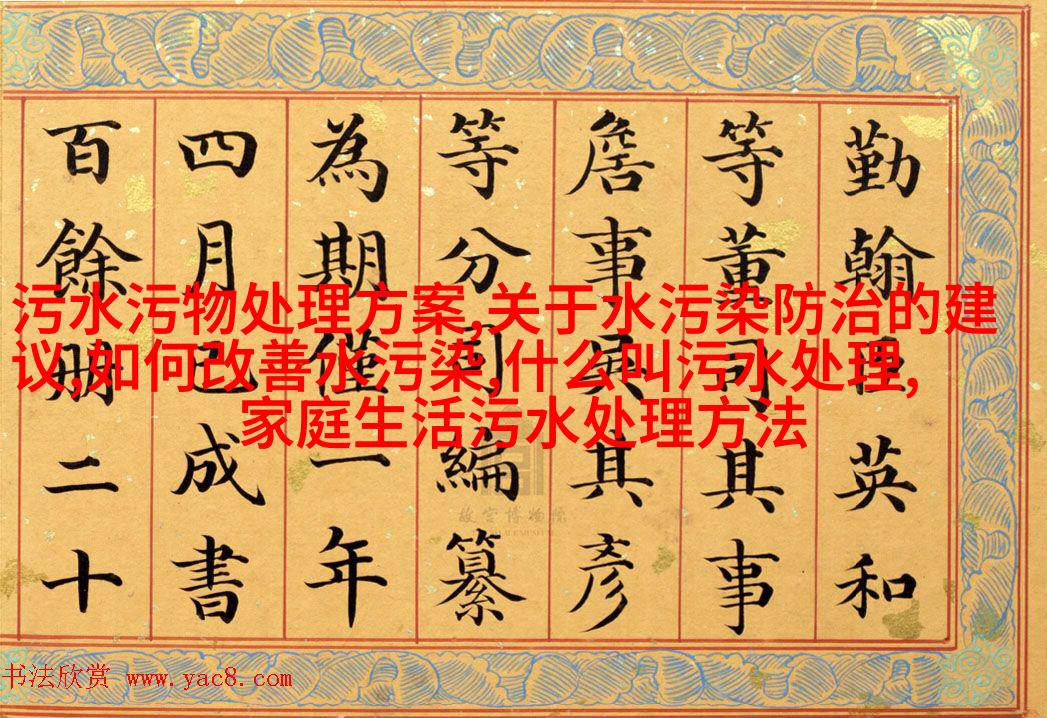 勤翰臣英和
等董司其事
詹事吳其彥
等分司編纂
為期僅一年
四月已成書
百餘冊二十
污水污物处理方案,关于水污染防治的建
议,如何改善水污染,什么叫污水处理,
家庭生活污水处理方法
故宫博物院
书法欣赏 www.yac8.com